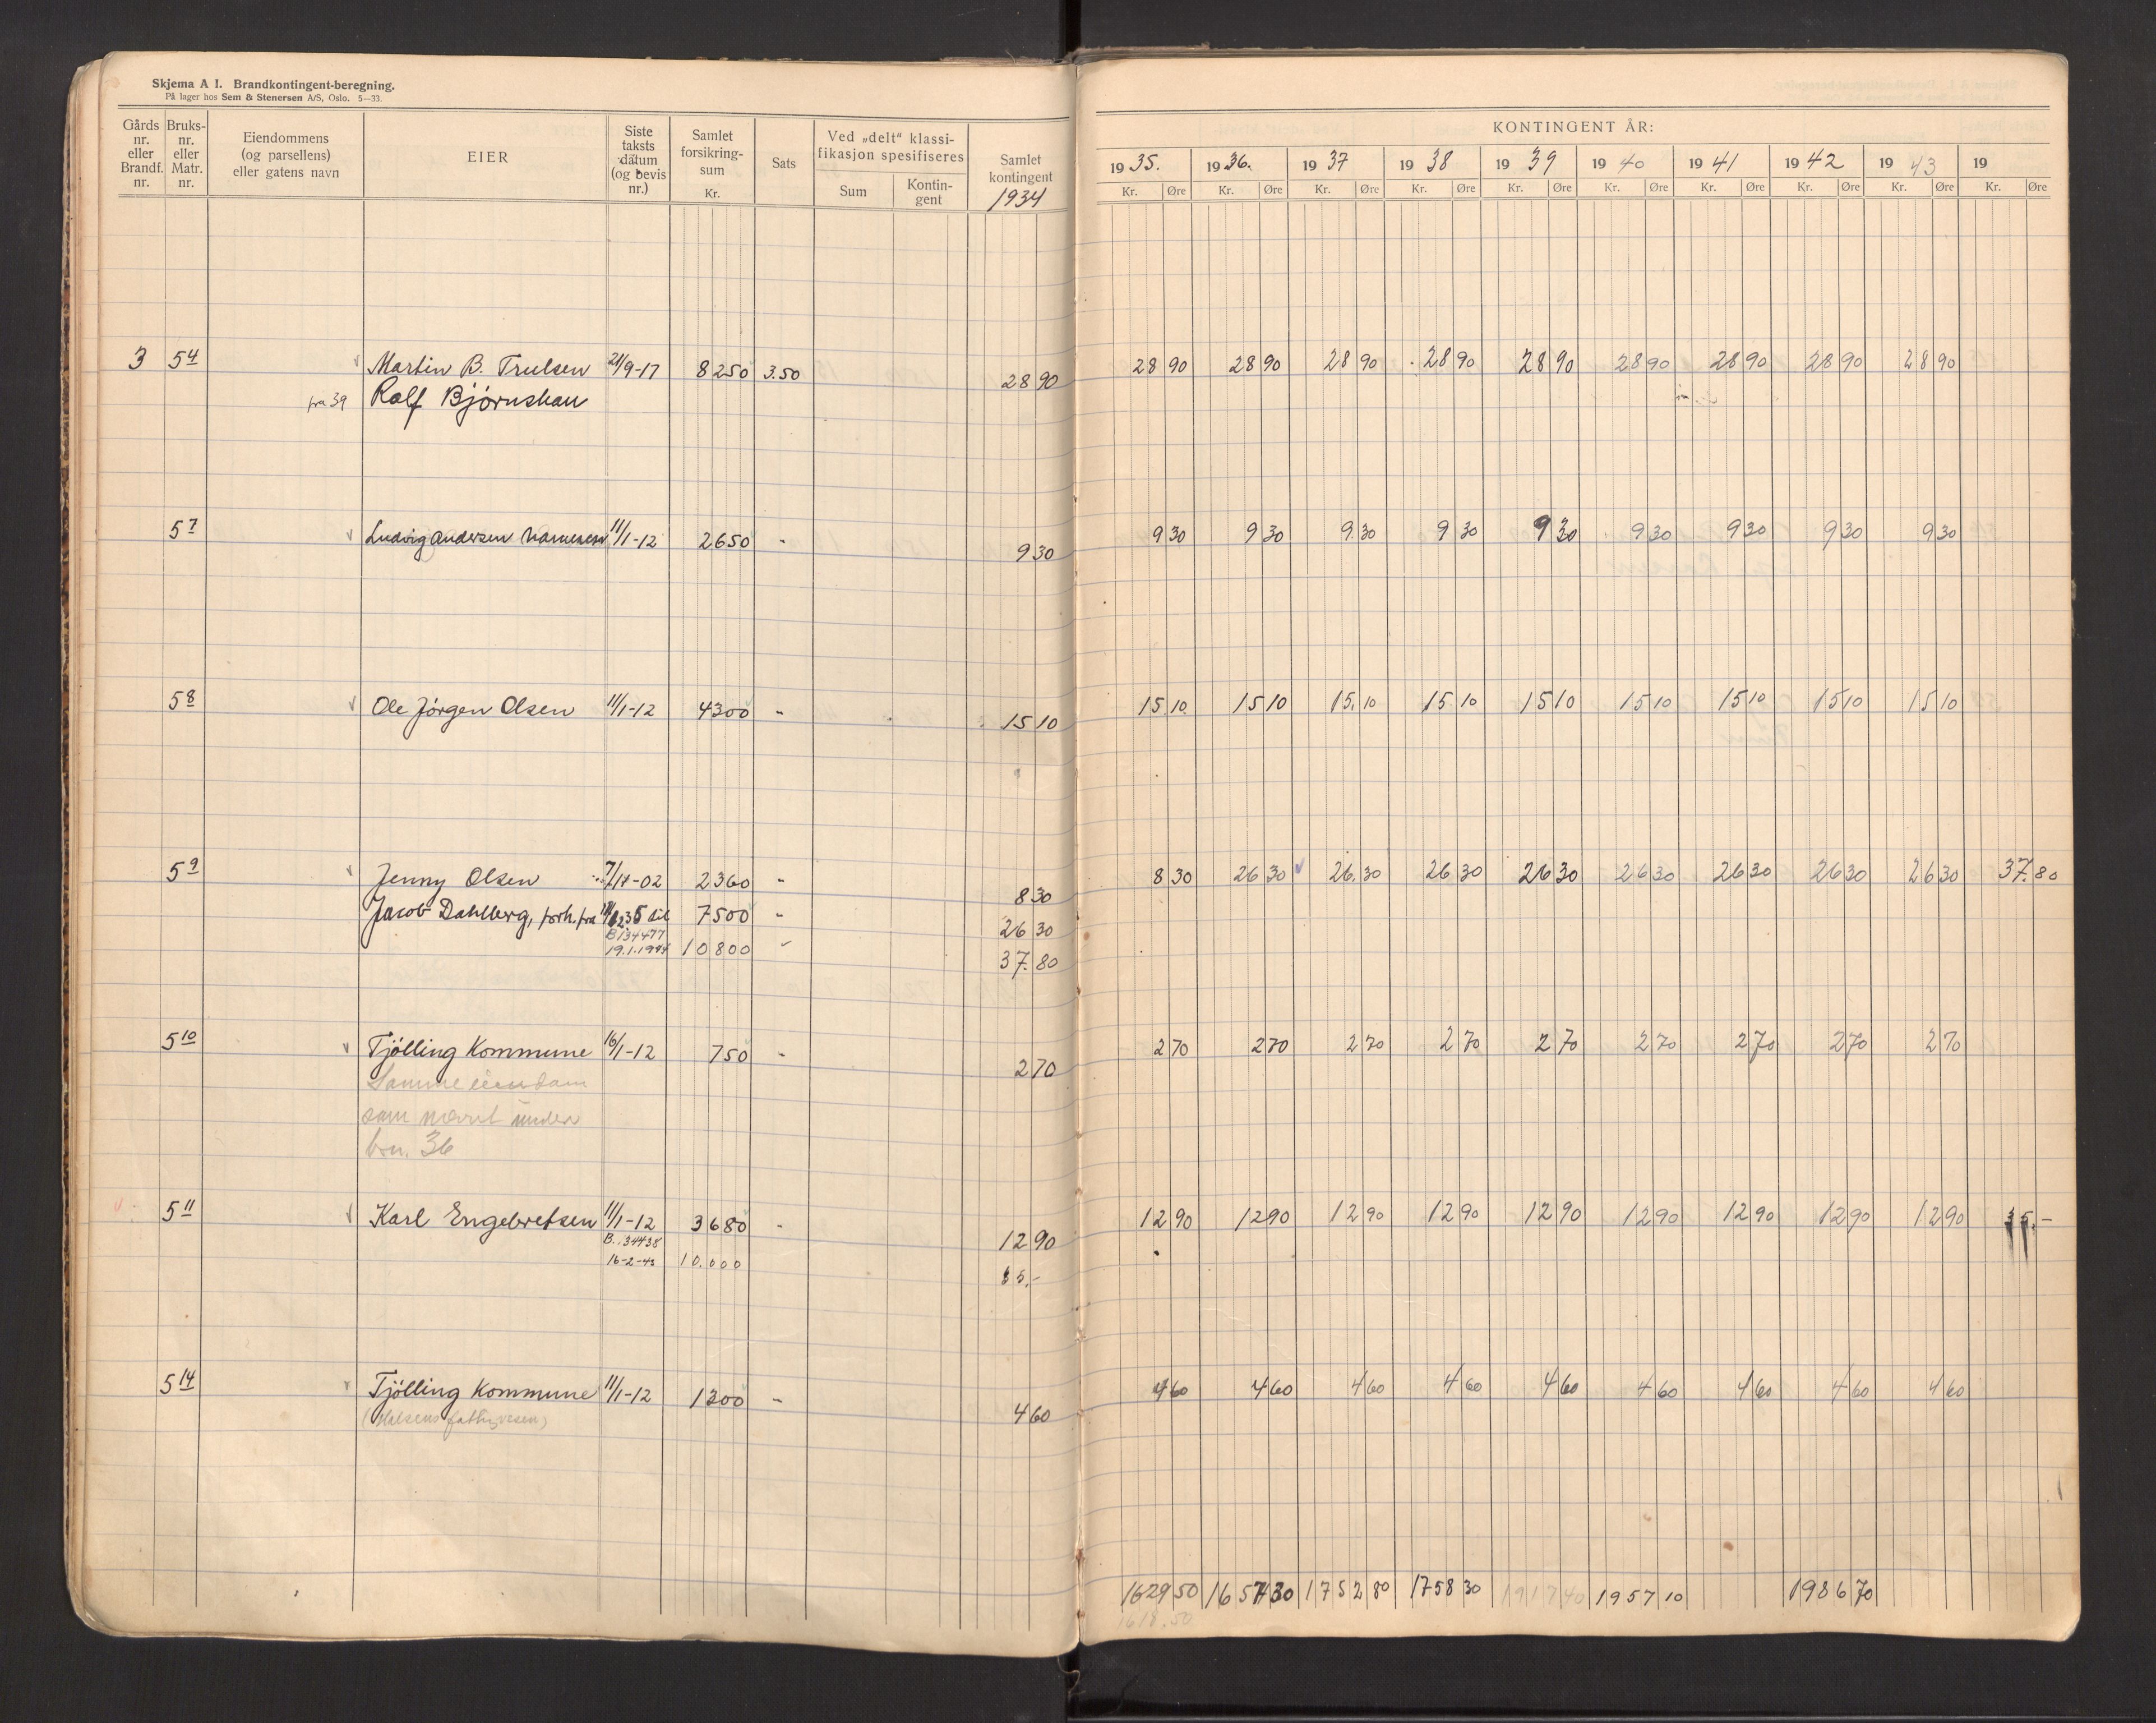 Skjema A I. Brandkontingent-beregning.
På lager hos Sem & Stenersen A/S, Oslo. 5—33.
Gårds nr. eller Brandf. nr.
Bruks- nr. eller Matr. nr.
Eiendommens (og parsellens) eller gatens navn
EIER
Siste taksts datum (og bevis nr.)
Samlet forsikring- sum Kr.
Sats
Ved „delt" klassi- fikasjon spesifiseres
Sum
Kontin- gent
Samlet kontingent 1934
KONTINGENT ÅR:
1935. 1936. 1937 1938 1939 1940 1941 1942 1943 19
Kr. Øre Kr. Øre Kr. Øre Kr. Øre Kr. Øre Kr. Øre Kr. Øre Kr. Øre Kr. Øre Kr. Øre
3 54 Martin B. Trulsen 21/9-17 8250 3.50 28 90 28 90 28 90 28 90 28 90 28 90 28 90 28 90 28 90 28 90
fra 39 Ralf Bjørnskau
57 Ludvig Andersen 11/1-12 2650 - 9 30 9 30 9 30 9.30 9 30 9 30 9 30 9 30 9 30 9 30
58 Ole Jörgen Olsen 11/1-12 4300 - 15 10 15 10 15 10 15.10 15 10 15 10 15 10 15 10 15 10 15 10
59 Jenny Olsen -02 2360 - 8 30 8 30 26 30 26.30 26 30 26 30 26 30 26 30 26 30 26 30 37.80
Jacob Dahlberg, forh. fra 7500 - 26 30
B134477
19.1.1944 10800 - 37.80
510 Tjölling Kommune 16/1-12 750 - 2 70 2 70 2 70 2 70 2 70 2 70 2 70 2 70 2 70 2 70
Samme eiendom
som nævnt under
brn. 36
511 Karl Engebretsen 11/1-12 3680 - 12 90 12 90 12 90 12 90 12 90 12 90 12 90 12 90 12 90 12 90 35.-
B. 34438
16-2-43 10.000 35.-
514 Tjölling Kommune 11/1-12 1300 - 4 60 4 60 4 60 4 60 4 60 4 60 4 60 4 60 4 60 4 60
1629 50 1657 30 1752 80 1758 30 1917 40 1957 10 1986 70
1618.50